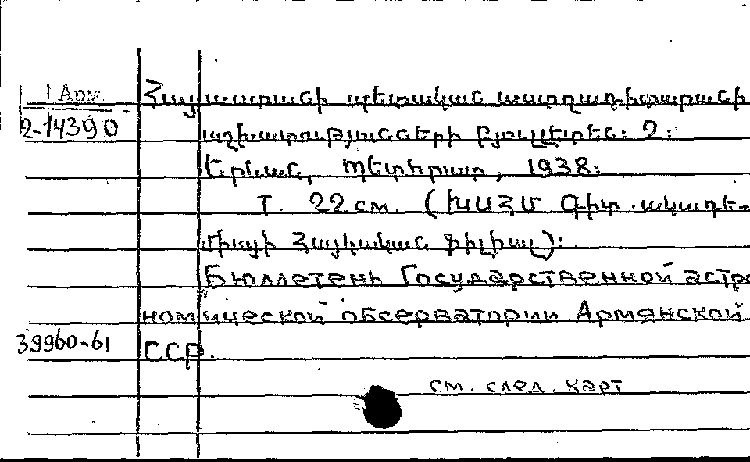 1 Арм.
2-14390
Հայաստանի պետական աստղադիտարանի
աշխատությունների բյուլետեն։ 2։
Երևան, Պետհրատ, 1938։
т. 22 см. (ԽՍՀՄ Գիտ. ակադե-
միայի Հայկական ֆիլիալ)։
Бюллетень Государственной астро
номической обсерватории Армянской
39960-61 ССР.
см. след. карт